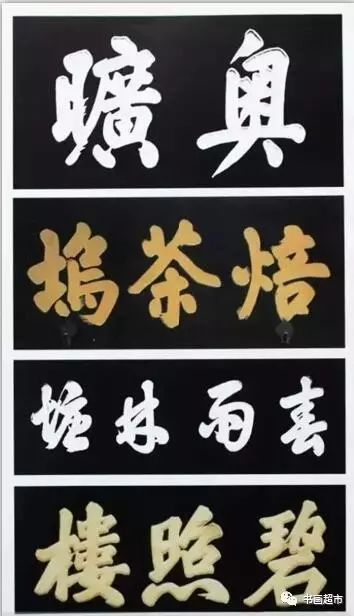 奥曠
焙茶塢
春雨林塘
碧照樓
书画超市